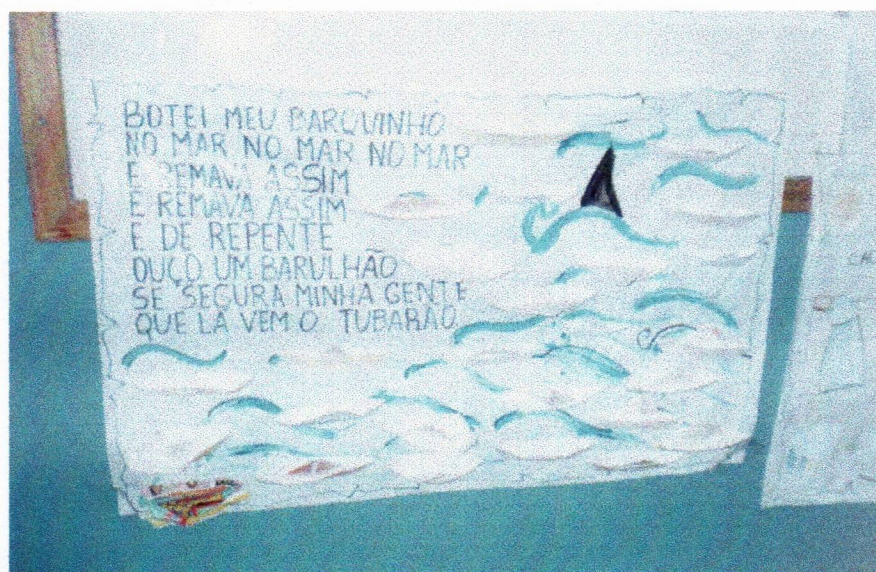 BOTEI MEU BARQUINHO
NO MAR NO MAR NO MAR
E REMAVA ASSIM
E REMAVA ASSIM
E DE REPENTE
OUÇO UM BARULHÃO
SE SEGURA MINHA GENTE
QUE LÁ VEM O TUBARÃO